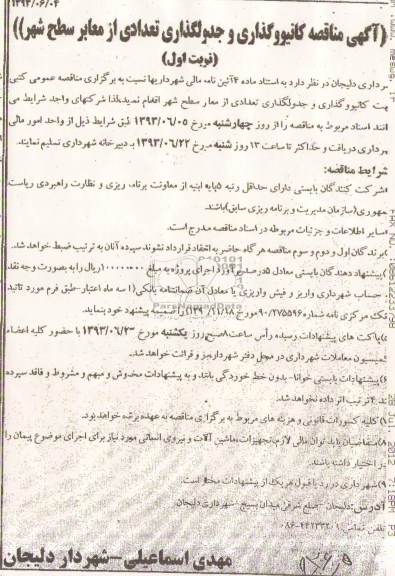 ۱۳۹۳/۰۶/۰۴
((آگهی مناقصه کانیوو گذاری و جدولگذاری تعدادی از معابر سطح شهر))
(نوبت اول)
شهرداری دلیجان در نظر دارد به استناد ماده ۴ آئین نامه مالی شهرداریها نسبت به برگزاری مناقصه عمومی کتبی
جهت کانیوو گذاری و جدولگذاری تعدادی از معابر سطح شهر اقدام نماید لذا شرکتهای واجد شرایط می
توانند اسناد مربوط به مناقصه را از روز چهارشنبه مورخ ۱۳۹۳/۰۶/۰۵ طبق شرایط ذیل از واحد امور مالی
شهرداری دریافت و حداکثر تا ساعت ۱۳ روز شنبه مورخ ۱۳۹۳/۰۶/۲۲ به دبیرخانه شهرداری تسلیم نمایند.
شرایط مناقصه:
شرکت کنندگان بایستی دارای حداقل رتبه ۵ پایه ابنیه از معاونت برنامه ریزی و نظارت راهبردی ریاست
جمهوری (سازمان مدیریت و برنامه ریزی سابق) باشند.
سایر اطلاعات و جزئیات مربوطه در اسناد مناقصه مندرج است.
برندگان اول و دوم و سوم مناقصه هر گاه حاضر به انعقاد قرارداد نشوند سپرده آنان به ترتیب ضبط خواهد شد.
پیشنهاد دهندگان بایستی معادل ۵ درصد برآورد اجرای پروژه به مبلغ ریال را به صورت وجه نقد
حساب شهرداری واریز و فیش واریزی یا معادل آن ضمانتنامه بانکی (با سه ماه اعتبار-طبق فرم مورد تائید
بانک مرکزی نامه شماره ۹۰/۲۷۵۵۹۶ مورخ را ضمیمه پیشنهاد خود بنماید.
۵) پاکت های پیشنهادات رسیده رأس ساعت ۸ صبح روز یکشنبه مورخ ۱۳۹۳/۰۶/۲۳ با حضور کلیه اعضاء
کمیسیون معاملات شهرداری در محل دفتر شهردار باز و قرائت خواهد شد.
۶) پیشنهادات بایستی خوانا-بدون خط خوردگی باشد و به پیشنهادات مخدوش و مبهم و مشروط و فاقد سپرده
ترتیب اثر داده نخواهد شد.
۷) کلیه کسورات قانونی و هزینه های مربوط به برگزاری مناقصه به عهده برنده خواهد بود.
۸) متقاضیان باید توان مالی لازم، تجهیزات، ماشین آلات و نیروی انسانی مورد نیاز برای اجرای موضوع پیمان را
در اختیار داشته باشند.
۹) شهرداری در رد یا قبول هر یک از پیشنهادات مختار است.
آدرس: دلیجان - ضلع شرقی میدان بسیج - شهرداری دلیجان
تلفن تماس: ۰۸۶-۴۴۲۲۳۲۰۱
مهدی اسماعیلی-شهردار دلیجان